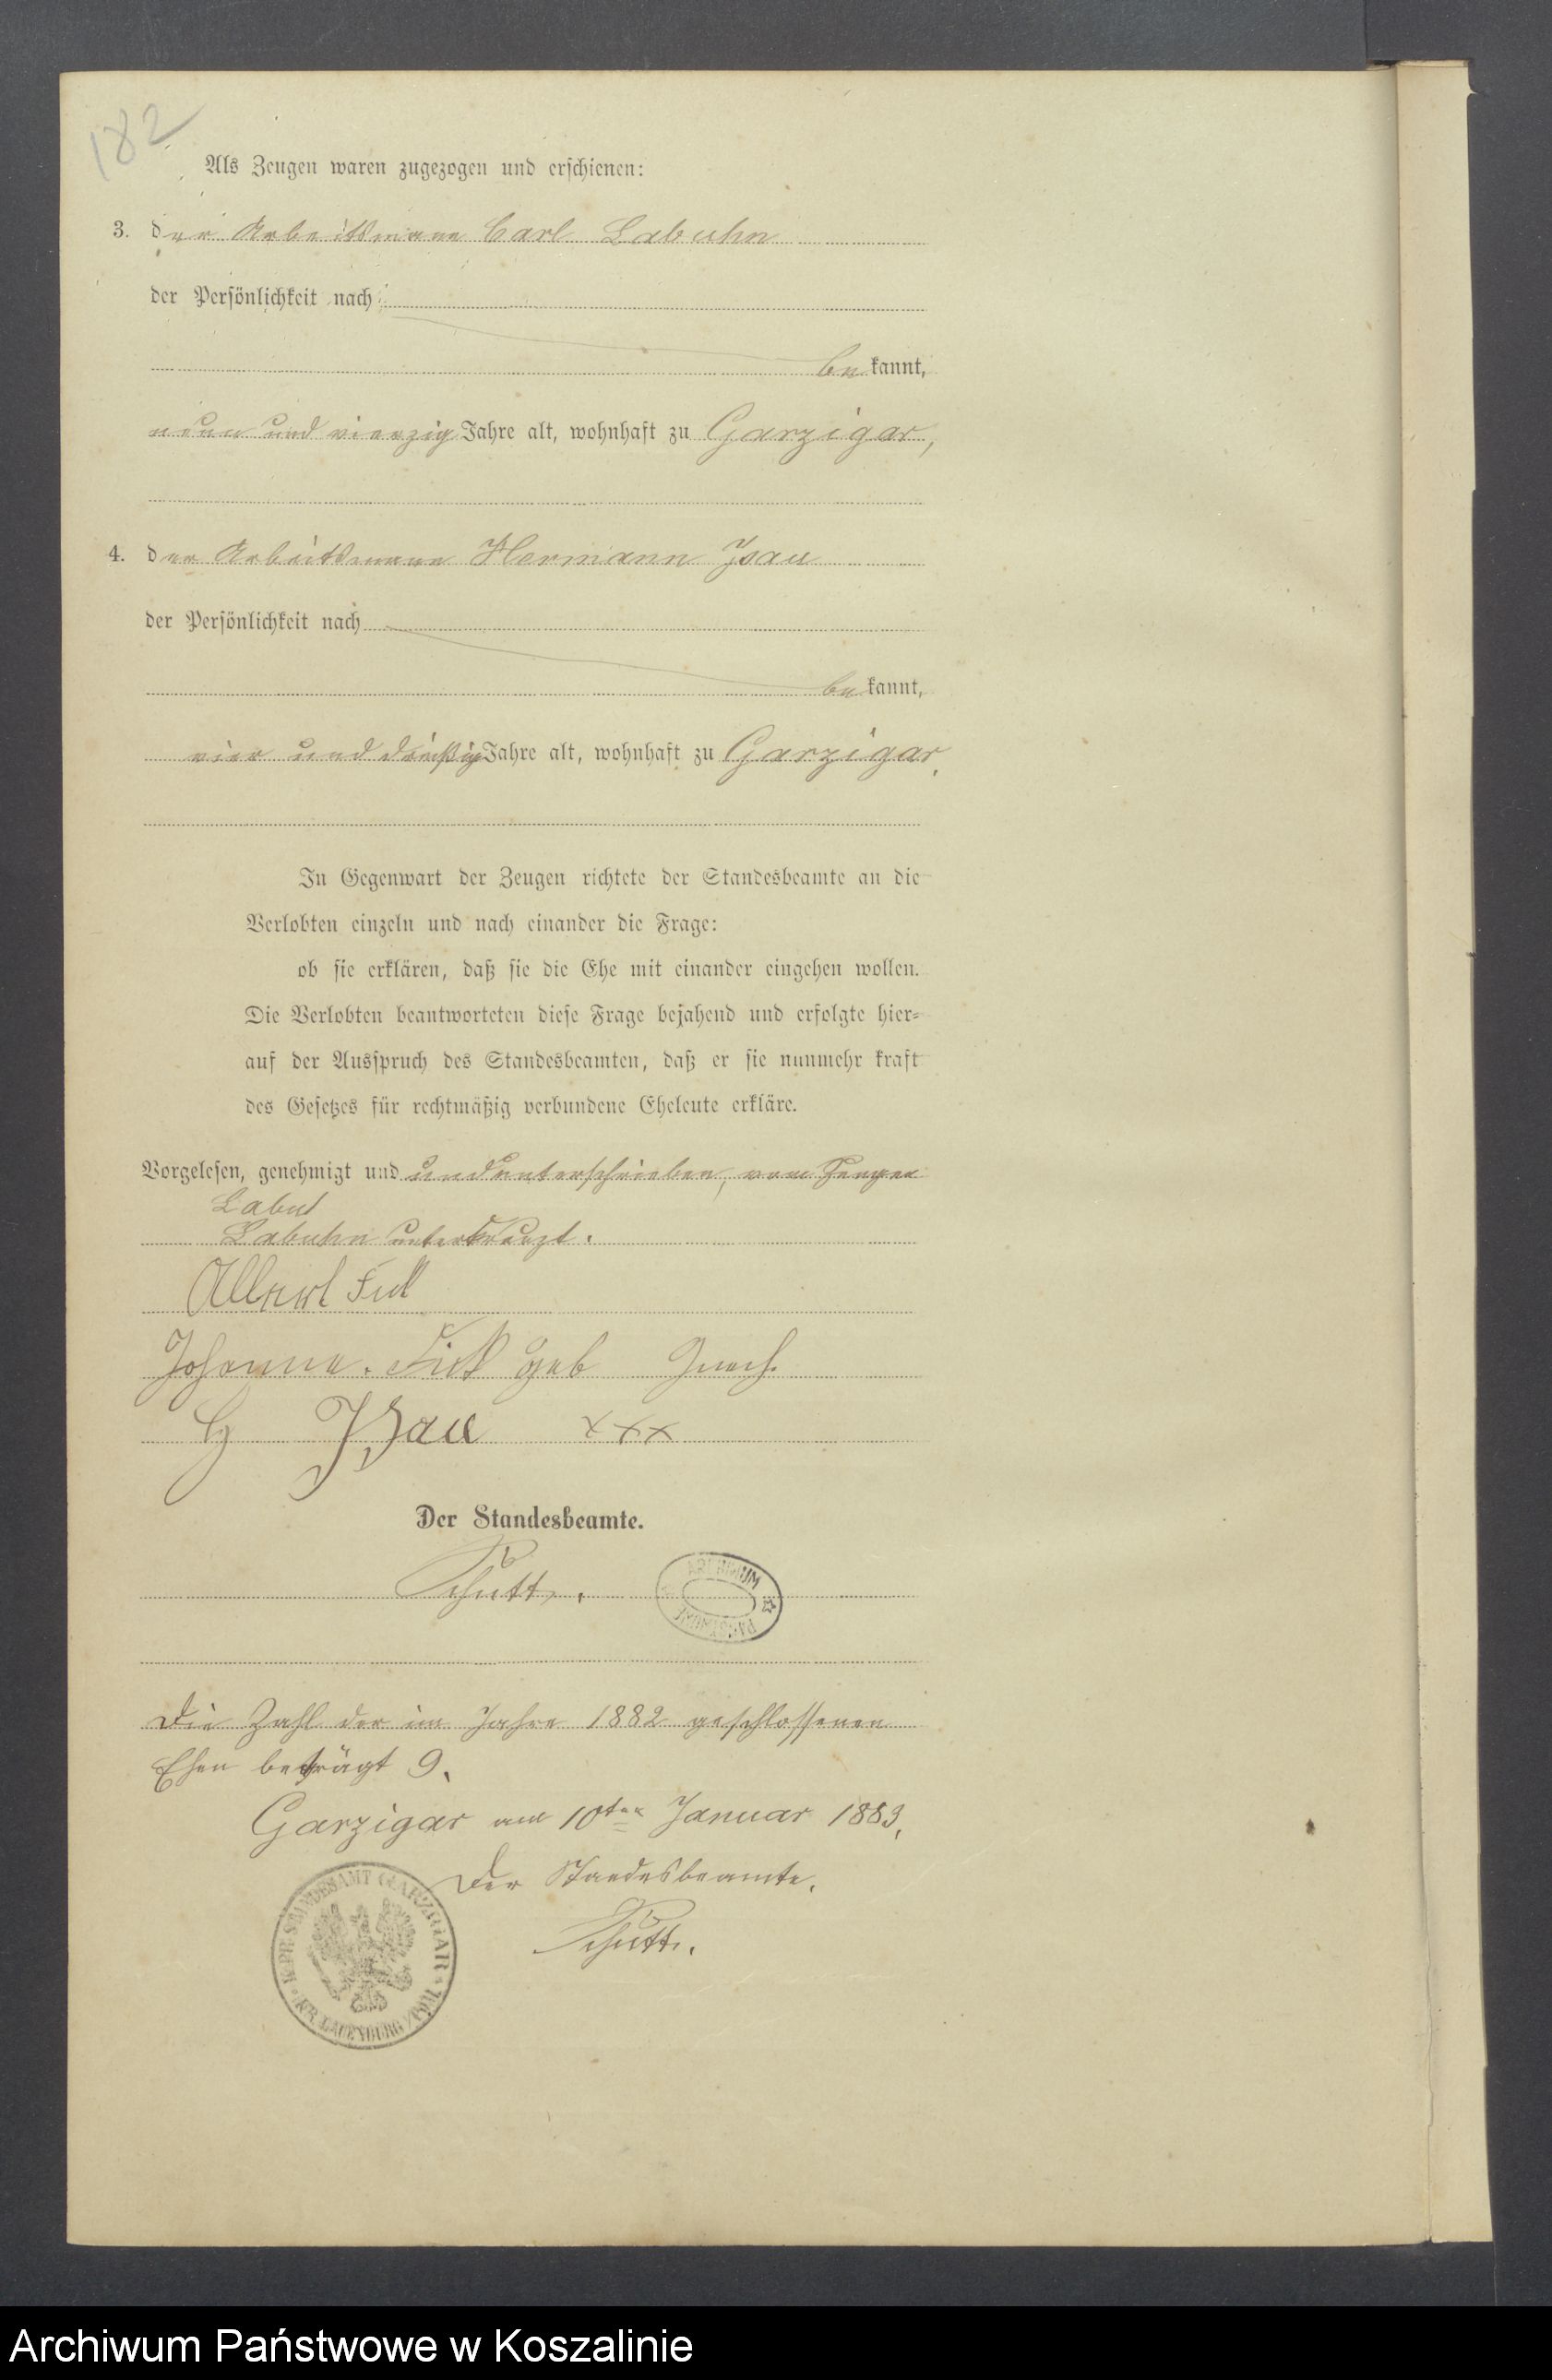 182
Als Zeugen waren zugezogen und erschienen:
3. der Arbeitsmann Carl Labuhn
der Persönlichkeit nach
bekannt,
neun und vierzig Jahre alt, wohnhaft zu Garzigar,
4. der Arbeitsmann Hermann Isau
der Persönlichkeit nach
bekannt,
vier und dreißig Jahre alt, wohnhaft zu Garzigar,
In Gegenwart der Zeugen richtete der Standesbeamte an die
Verlobten einzeln und nach einander die Frage:
ob sie erklären, daß sie die Ehe mit einander eingehen wollen.
Die Verlobten beantworteten diese Frage bejahend und erfolgte hier-
auf der Ausspruch des Standesbeamten, daß er sie nunmehr kraft
des Gesetzes für rechtmäßig verbundene Eheleute erkläre.
Vorgelesen, genehmigt und und unterschrieben, vom Zeugen
Labuhn unterkreuzt.
Albert Fick
Johanna Fick geb
H Isau xxx
Der Standesbeamte.
Schütt.
ARCHIWUM
Die Zahl der im Jahre 1882 geschlossenen
Ehen beträgt 9.
Garzigar am 10ten Januar 1883.
Der Standesbeamte.
Schütt.
K. PR. STANDESAMT GARZIGAR
KR. LAUENBURG
Archiwum Państwowe w Koszalinie